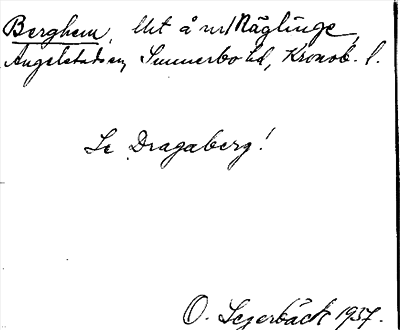 Berghem, lht å nr 1 Näglinge,
Angelstads sn, Sunnerbo hd, Kronob. l.
Se Dragaberg!
O. Segerbäck 1937.